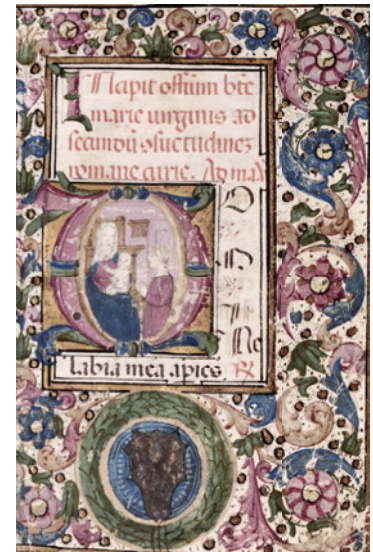 INcipit offitiũm bte
marie uirginis ad
secundũ ↄsuetudinez
romane curie. Ad ma
O
M
Ne
labia mea apies. ℟